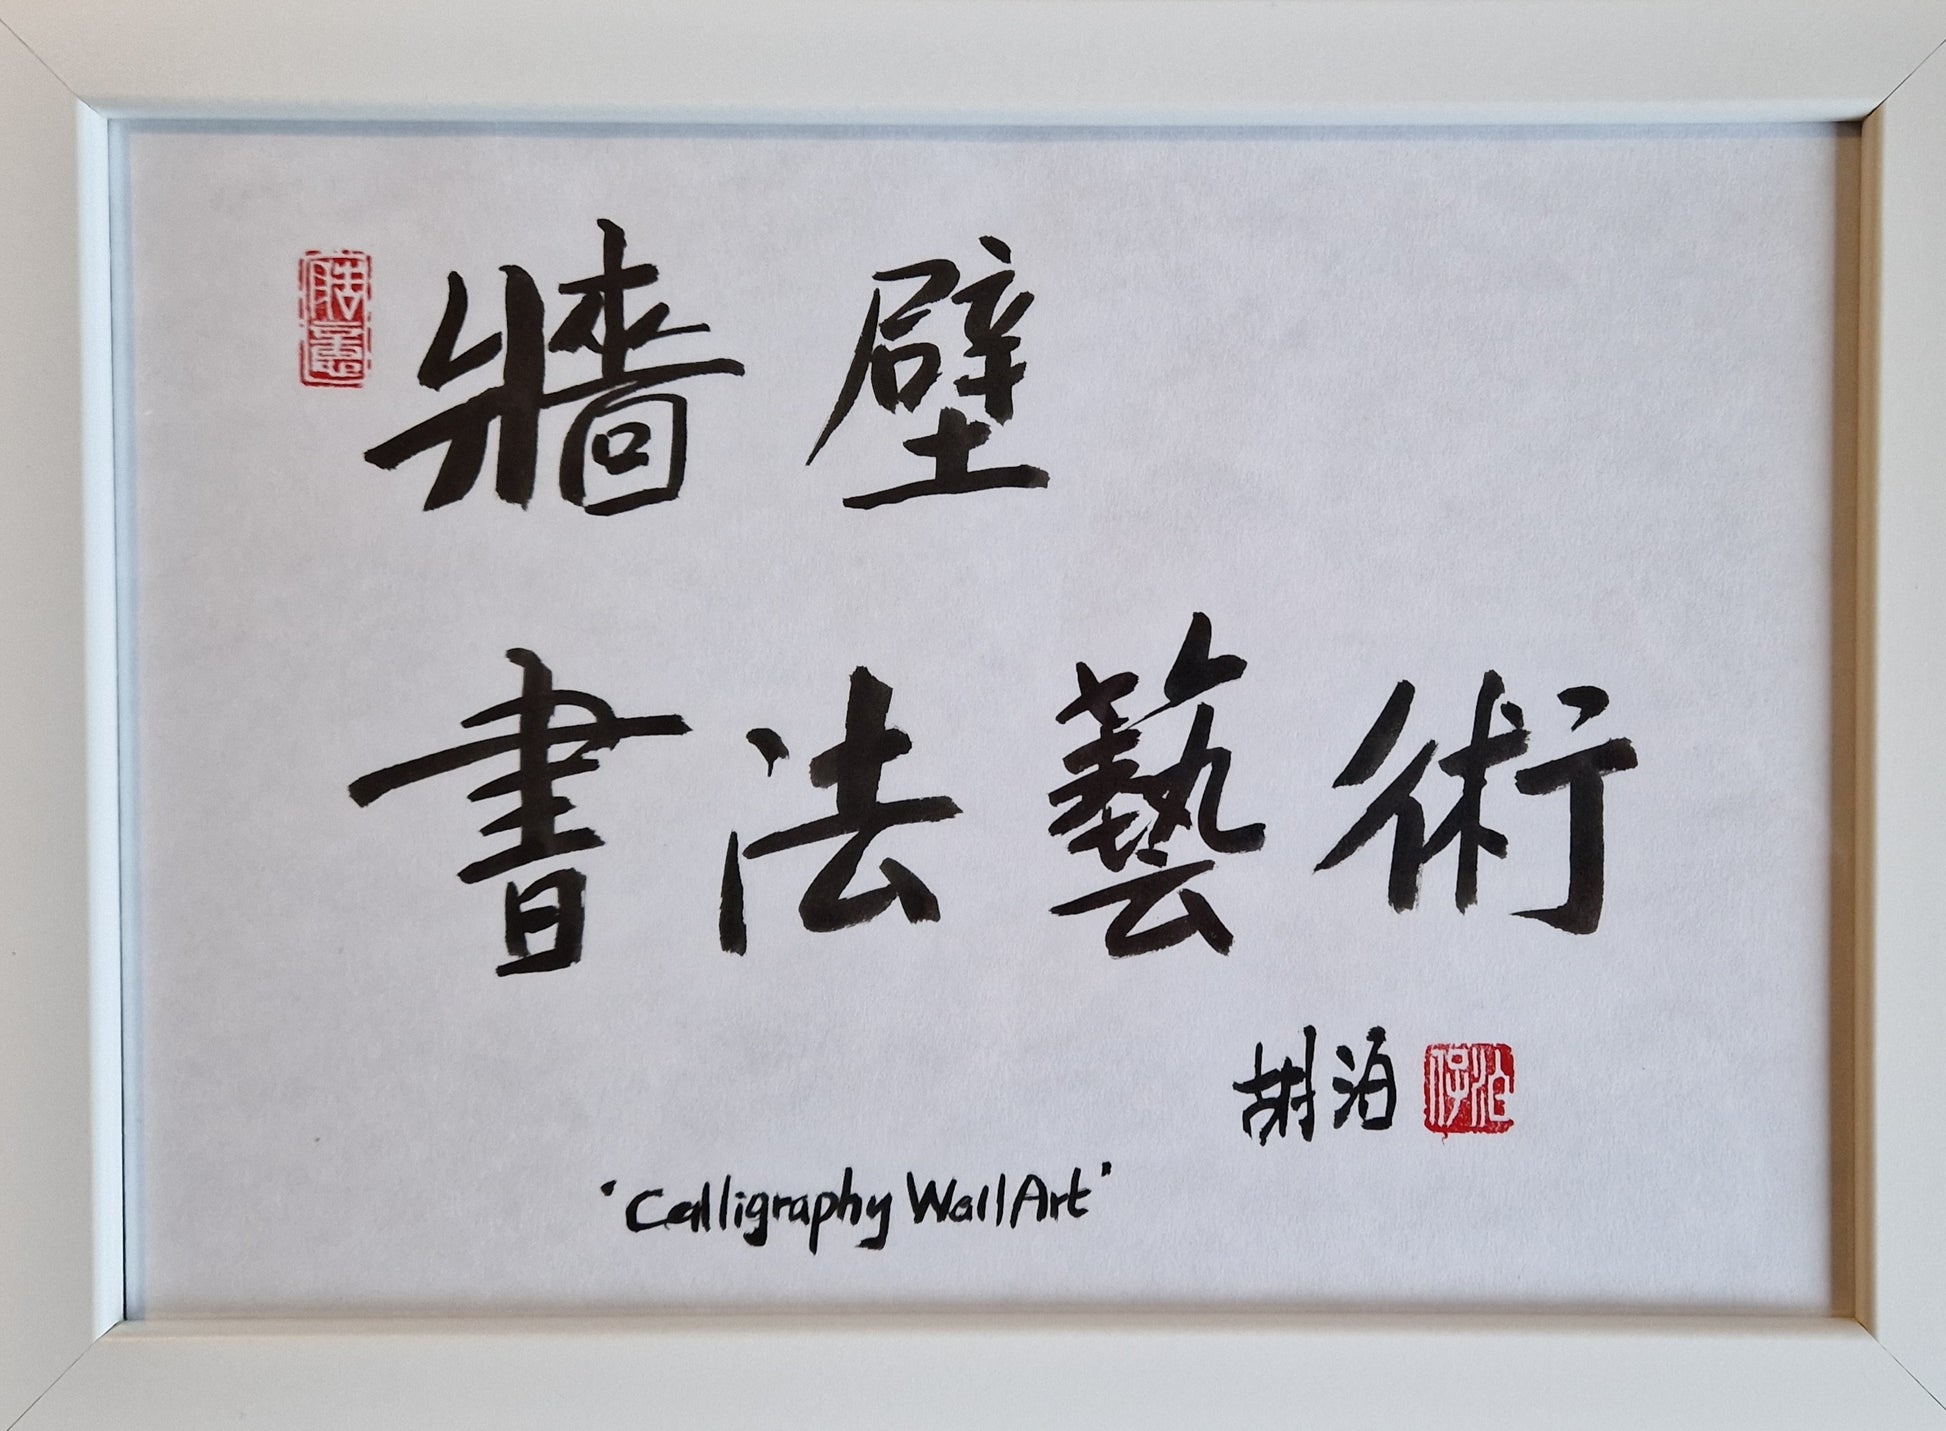 牆壁
書法藝術
胡泊
"Calligraphy Wall Art"